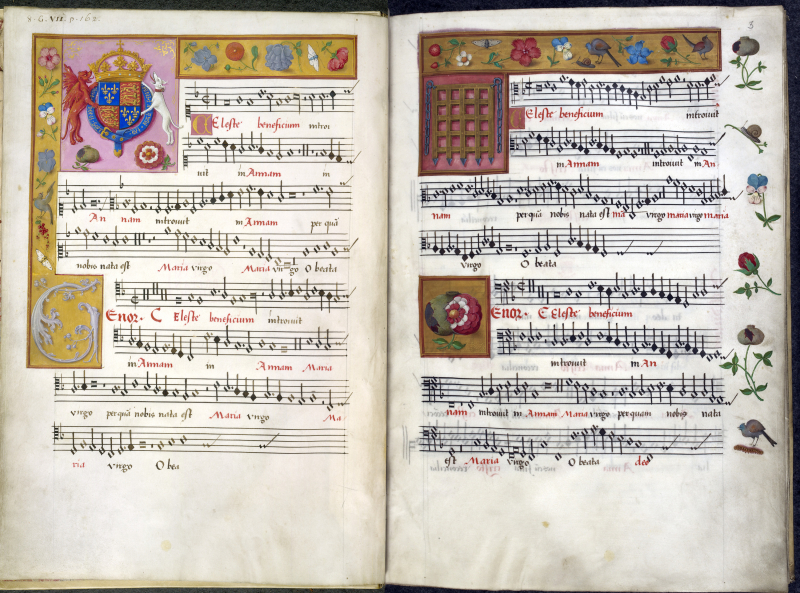 8. G. VII. p. 162
Celeste beneficium introi
uit in Annam in
An nam introiuit in Annam per quã
nobis nata est Maria virgo Maria virgo O beata
Tenor. C Eleste beneficium introiuit
in Annam in Annam Maria
virgo per quã nobis nata est Maria virgo Ma
ria virgo O bea
3
Celeste beneficium introiuit
in Annam introiuit in An
nam per quã nobis nata est ma virgo maria virgo maria
virgo O beata
Tenor. C Eleste beneficium
introiuit in An
nam introiuit in Annam Maria virgo per quam nobis nata
est Maria virgo O beata deo